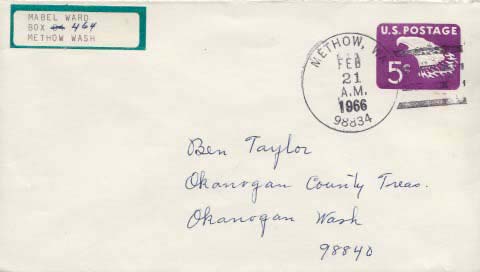 MABEL WARD
BOX 464
METHOW WASH
U.S. POSTAGE
5¢
METHOW, WA
FEB
21
A.M.
1966
98834
Ben Taylor
Okanogan County Treas.
Okanogan Wash
98840